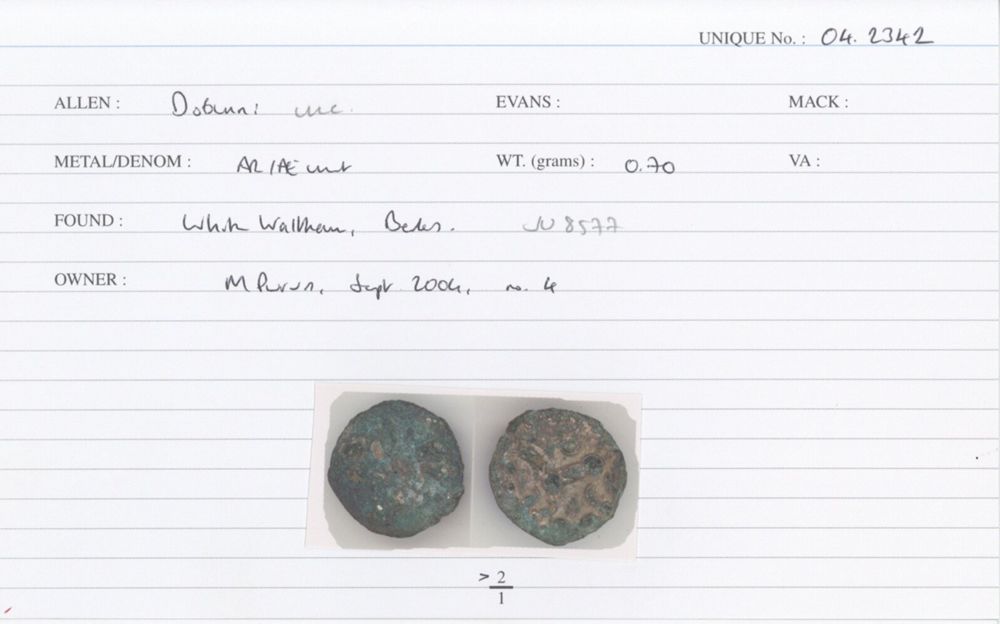 UNIQUE No. : 04. 2342
ALLEN : Dobunni unc. EVANS : MACK :
METAL/DENOM : AR/Æ unit WT. (grams) : 0.70 VA :
FOUND : White Waltham, Berks. SU 8577
OWNER : M Sept 2004, no. 4
> 2
1